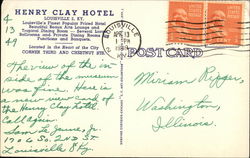 HENRY CLAY HOTEL
LOUISVILLE 2, KY.
Louisville's Finest Popular Priced Hotel
Beautiful Beaux Arts Lounge and
Tropical Dining Room — Several Large
Ballrooms and Private Dining Rooms for
Functions and Banquets.
Located in the Heart of the City
CORNER THIRD AND CHESTNUT STS.
LOUISVILLE
APR 13
1 PM
POST CARD
4
13
49
The view of the in-
side of the museum
was fine. Here is
a new view card of
the Henry Clay hotel
Call again.
Sam L. James, Jr.
1906 So. 2nd St.
Louisville 8 Ky.
Miriam
Washington,
Illinois.